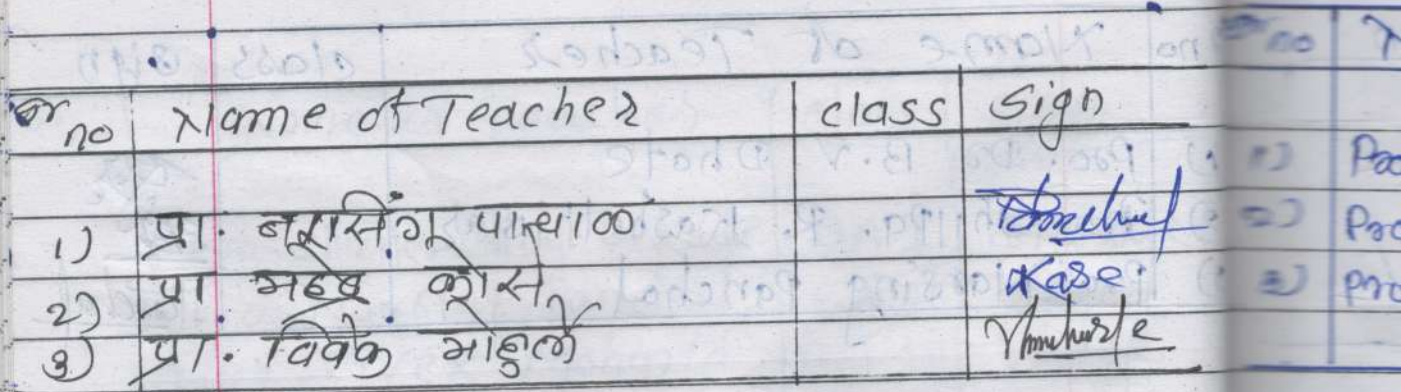 Sr no Name of Teacher class Sign
1) प्रा. नरसिंग पांचाळ
2) प्रा महेश कासे Kase
3) प्रा. विवेक मोहुले
no
Pro
Pro
Pro